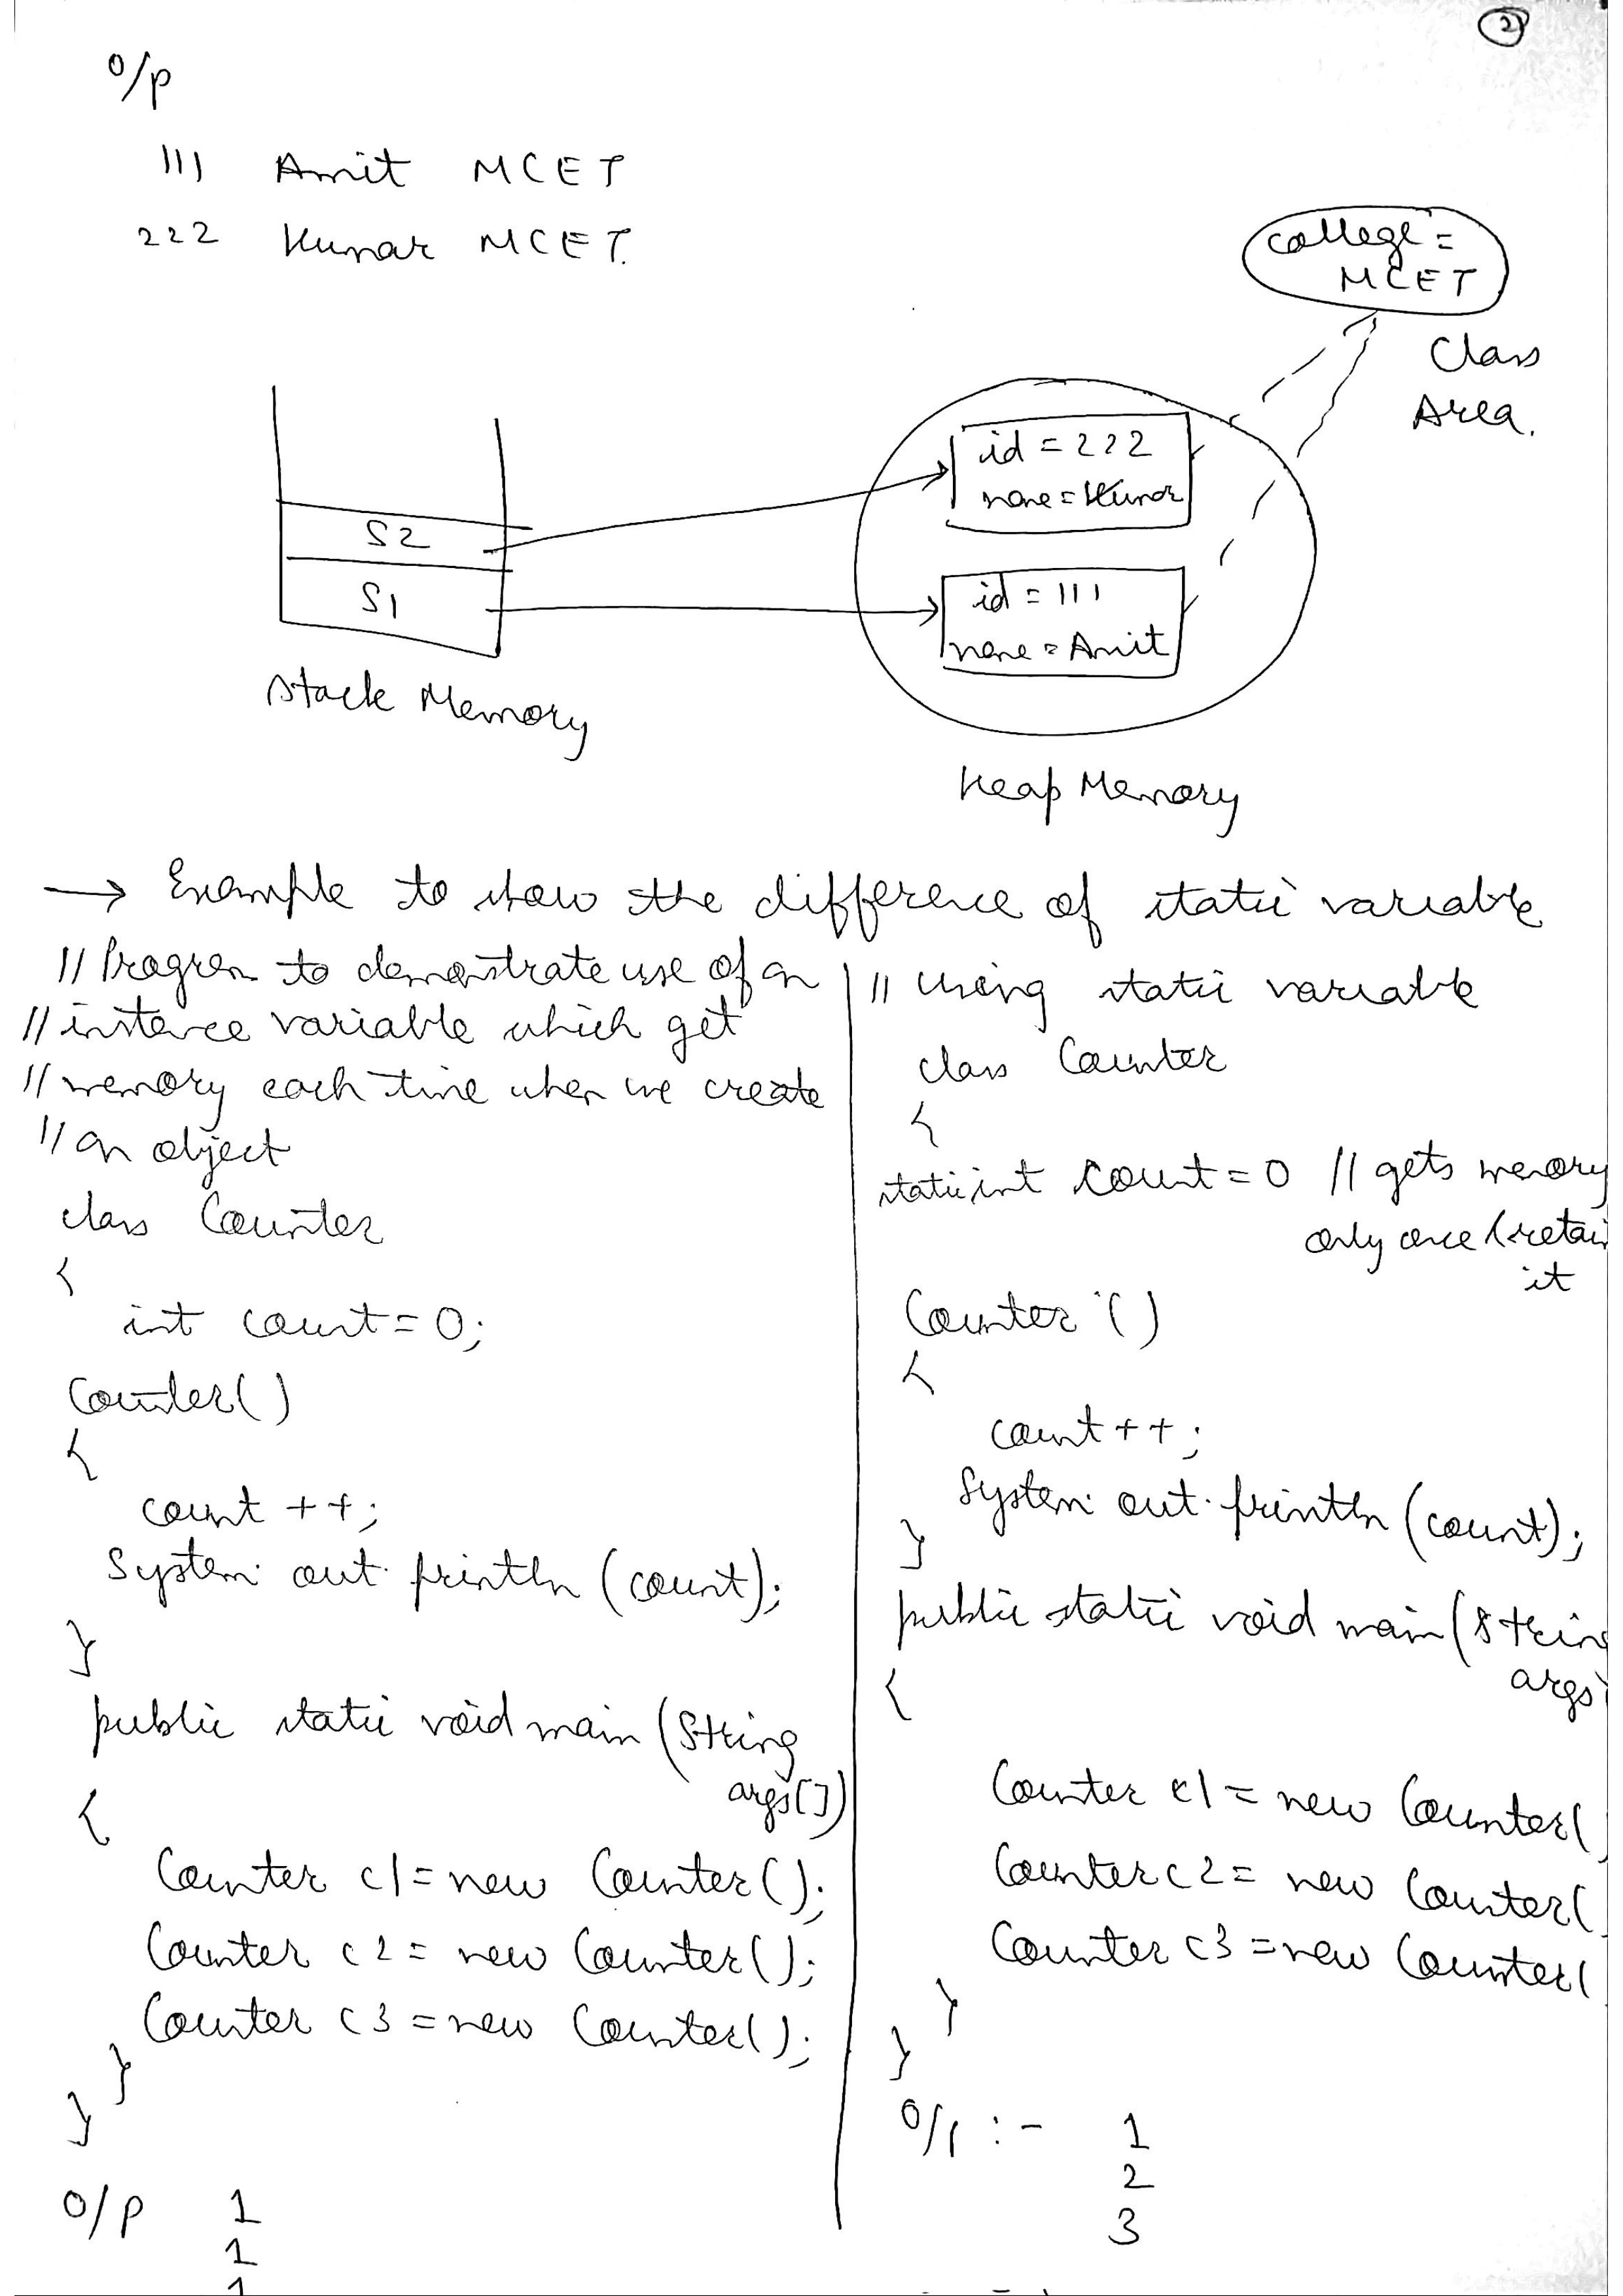 2
O/P
111 Amit MCET
222 Kumar MCET.
college =
MCET
Class
Area.
id = 222
name = Kumar
S2
S1
id = 111
name = Amit
Stack Memory
Heap Memory
→ Example to show the difference of static variable
// Program to demonstrate use of an
// instance variable which get
// memory each time when we create
// an object
class Counter
{
int count = 0;
Counter()
{
count ++;
System.out.println (count);
}
public static void main (String
args[])
{
Counter c1 = new Counter();
Counter c2 = new Counter();
Counter c3 = new Counter();
}
}
O/P 1
1
1
// using static variable
class Counter
{
static int count = 0 // gets memory
only once & retai
it
Counter ()
{
count ++;
System.out.println (count);
}
public static void main (String
args
{
Counter c1 = new Counter(
Counter c2 = new Counter(
Counter c3 = new Counter(
}
}
O/P :- 1
2
3